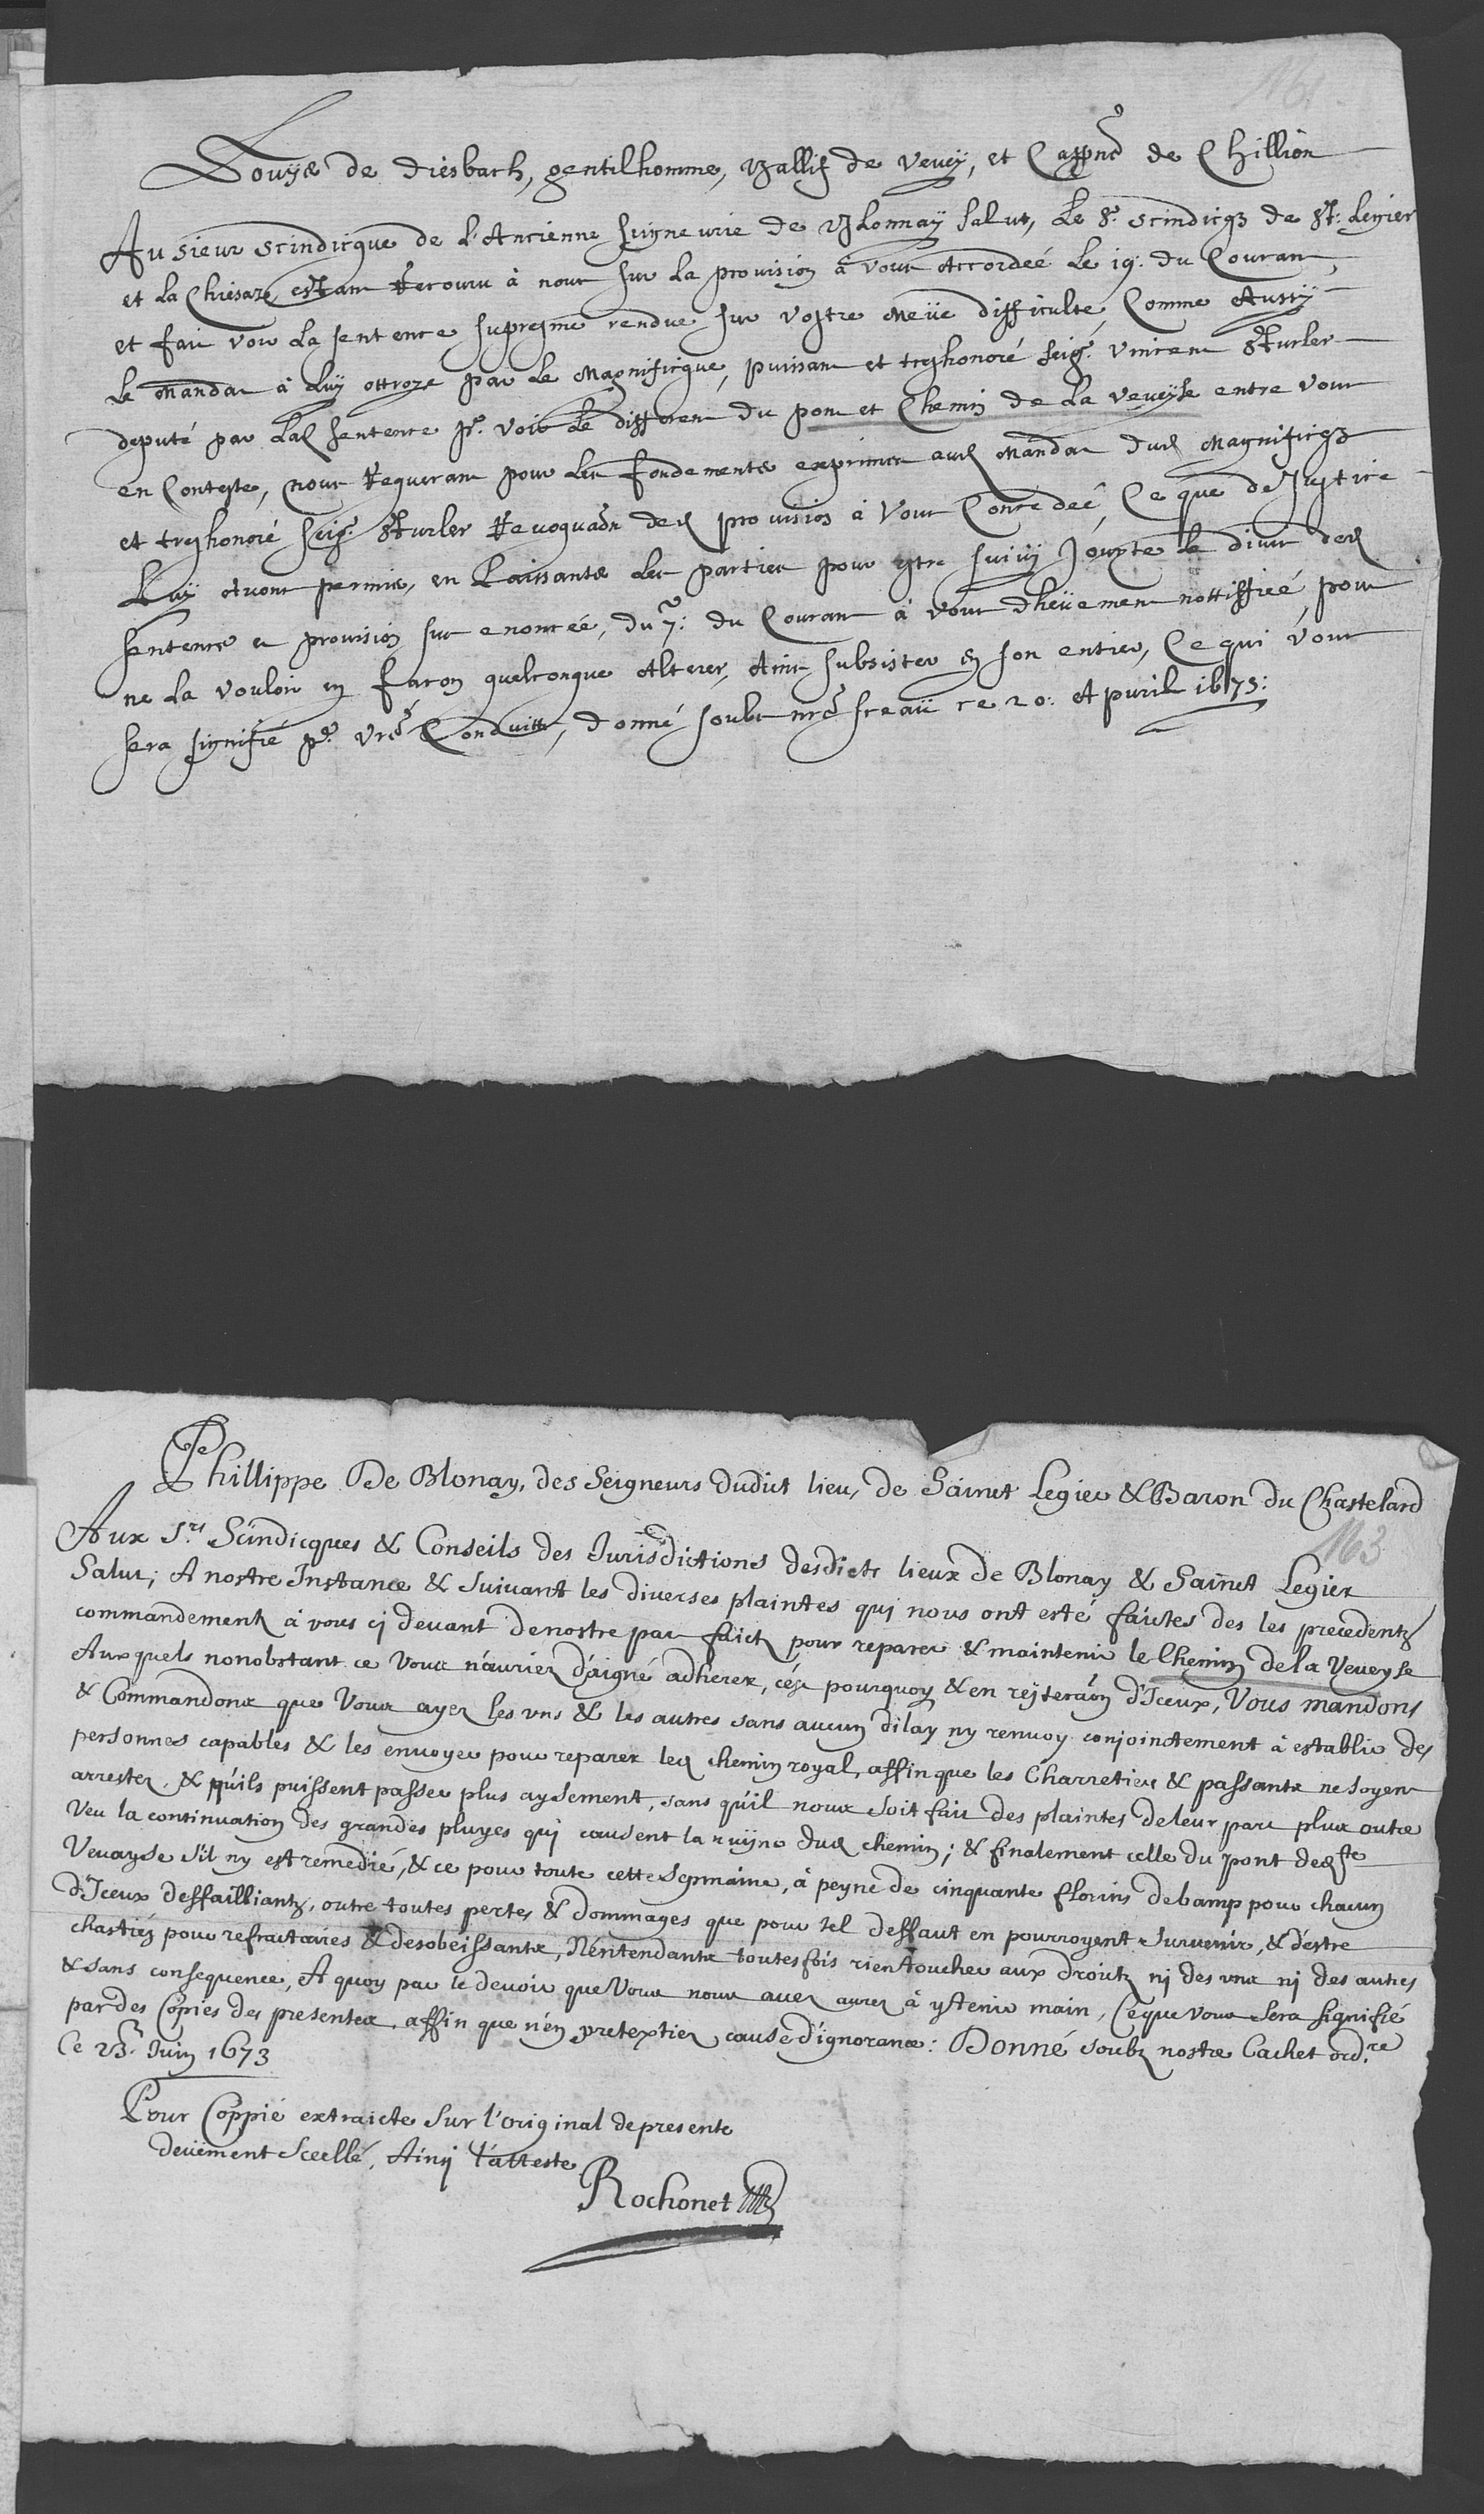 161
Louys de Diesbach, gentilhomme, Ballif de Vevey, et Cappne de Chillion
Au sieur scindicque de l'Ancienne seigneurie de Blonnay salut, Le Sr. scindicq de St. Legier
et la Chiesaz estant Recouru à nous sur la provision à vous Accordeé le 19. du Courant,
et fait voir la sentence supresme rendue sur vostre meüe difficulté, Comme Aussy
le Mandat à luy ottroyé par le Magnificque, puissant et treshonoré seigr. Vincent Sturler
deputé par lad sentence pr. voir le different du pont et Chemin de la Veveyse entre vous
en Conteste, nous Requerant pour les fondements exprimés aud Mandat dud Magnificq
et treshonoré seigr. Sturler Revoquaon de lad provision à vous Concedeé, Ce que de Justice
luy avons permis, en laissants les parties pour estre suivy Jouxte le divis de lad
sentence et provision sus enonceé, du 7e: du Courant à vous dheüement nottiffieé, pour
ne la vouloir en facon quelconque Alterer, Ains subsister en son entier, Ce qui vous
sera signifié pr. vre Conduitte, Donné soubs nre sceaü ce 20: Apvril 1673:
Phillippe De Blonay, des Seigneurs dudict lieu, de Sainct Legier & Baron du Chastelard
163
Aux Srs. Scindicques & Conseils des Jurisdictions desdicts lieux de Blonay & Sainct Legier
Salut; A nostre Instance & suivant les diverses plaintes qui nous ont esté faictes des les precedentz
commandementz à vous cy devant de nostre part faictz pour reparer & maintenir le Chemin de la Veveyse
Aux quels nonobstant ce vous n'auriez d'aigné adherer, c'est pourquoy & en reÿteraon d'Iceux, Vous mandons
& Commandons que Vous ayez les uns & les autres sans aucun dilay ny renvoy conjoinctement à establir des
personnes capables & les envoyer pour reparer led chemin royal, affin que les Charretiers & passants ne soyent
arrestez, & qu'ils puissent passer plus aysement, sans qu'il nous soit fait des plaintes de leur part plus outre
Veu la continuation des grandes pluyes qui causent la ruÿne dud chemin; & finalement celle du pont de ladte
Vevayse s'il ny est remedié, & ce pour toute cette sepmaine, à peyne de cinquante florins de bamp pour chacun
d'Iceux deffailliantz, outre toutes pertes & dommages que pour tel deffaut en pourroyent survenir, & d'estre
chastiéz pour refractaires & desobeissants, N'entendants toutesfois rien toucher aux droictz ni des uns ni des autres
& sans consequence, A quoy par le devoir que Vous nous avez aurez à y tenir main, Ce que vous sera signifié
par des Copies des presentes, affin que n'en pretextiez cause d'ignorance: Donné soubz nostre Cachet ordre.
Ce 23e. Juin 1673
Pour Coppié extraicte sur l'original de presente
deuëment sceellé, Ainsy l'atteste
Rochonet